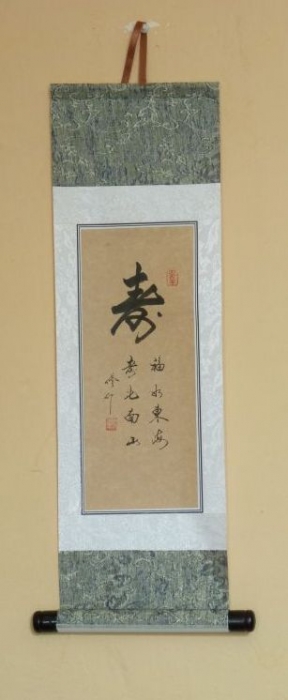 寿
福如東海
寿比南山